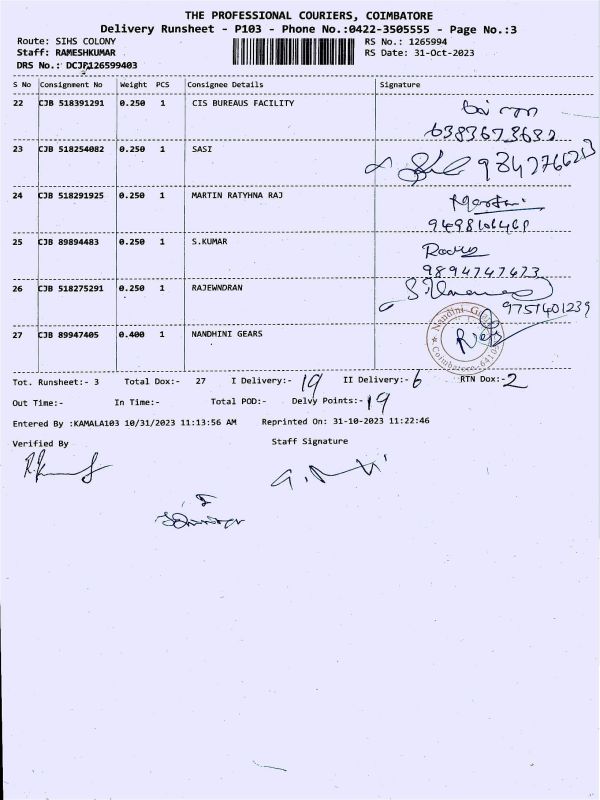 THE PROFESSIONAL COURIERS, COIMBATORE
Delivery Runsheet - P103 - Phone No.:0422-3505555 - Page No.:3
Route: SIHS COLONY RS No.: 1265994
Staff: RAMESHKUMAR RS Date: 31-Oct-2023
DRS No.: DCJP126599403
S No Consignment No Weight PCS Consignee Details Signature
22 CJB 518391291 0.250 1 CIS BUREAUS FACILITY
23 CJB 518254082 0.250 1 SASI
24 CJB 518291925 0.250 1 MARTIN RATYHNA RAJ
25 CJB 89894483 0.250 1 S.KUMAR
9894747473
26 CJB 518275291 0.250 1 RAJEWNDRAN
9751401239
27 CJB 89947405 0.400 1 NANDHINI GEARS
Tot. Runsheet:- 3 Total Dox:- 27 I Delivery:- 19 II Delivery:- 6 RTN Dox:- 2
Out Time:- In Time:- Total POD:- Delvy Points:- 19
Entered By :KAMALA103 10/31/2023 11:13:56 AM Reprinted On: 31-10-2023 11:22:46
Verified By Staff Signature